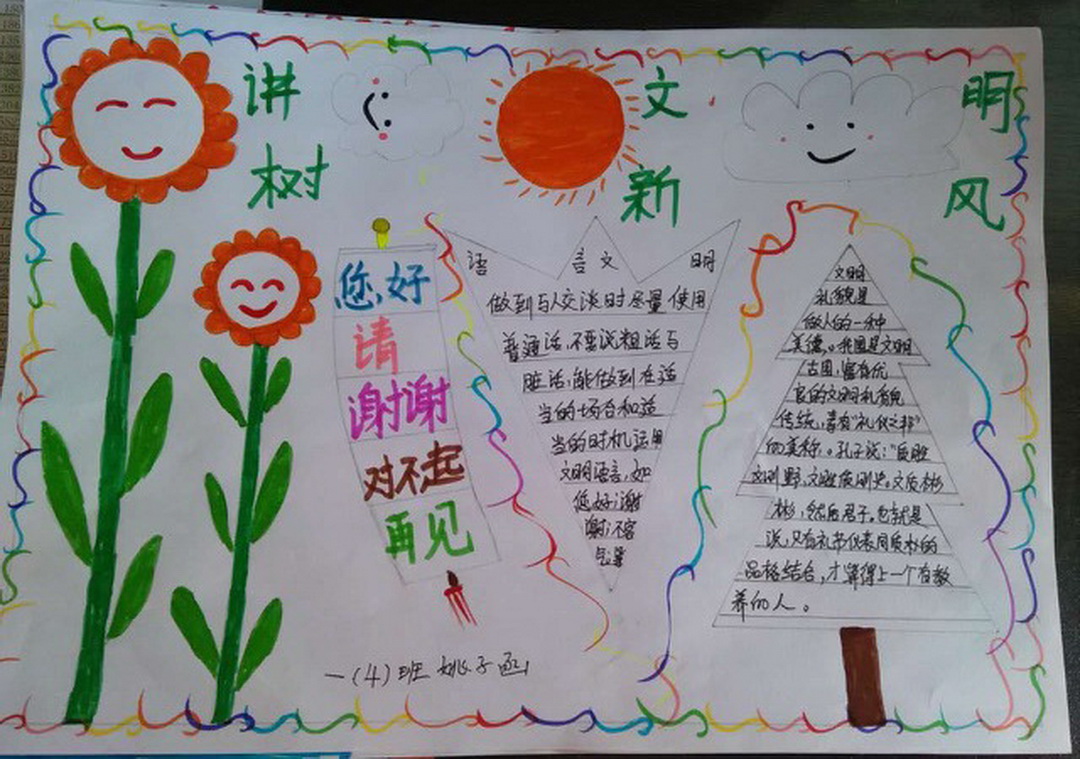 讲文明
树新风
您好
请
谢谢
对不起
再见
语言文明
做到与人交谈时尽量使用
普通话，不要说粗话与
脏话，能做到在适
当的场合和适
当的时机运用
文明语言，如
您好；谢
谢；不客
气等
文明
礼貌是
做人的一种
美德。我国是文明
古国，富有优
良的文明礼貌
传统，素有“礼仪之邦”
的美称。孔子说：“质胜
文则野，文胜质则史。文质彬
彬，然后君子。也就是
说，只有礼节仪表同质朴的
品格结合，才算得上一个有教
养的人。
一（4）班 姚子函